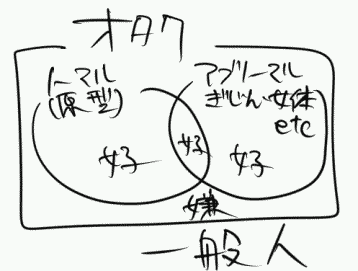 オタク
ノーマル
(原型)
アブノーマル
ぎじん・女体
etc
好
好
好
嫌
一般人